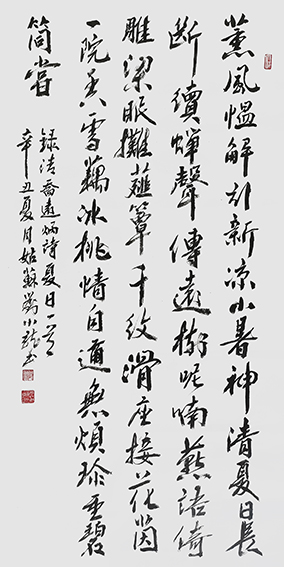 薰風愠解引新凉小暑神清夏日長
斷續蟬聲傳遠樹呢喃燕語倚
雕梁眠攤薤簟千紋滑座接花茵
一院香雪藕冰桃情自適無煩珍重碧
筒嘗
録清喬遠炳詩夏日一首
辛丑夏月姑蘇小書